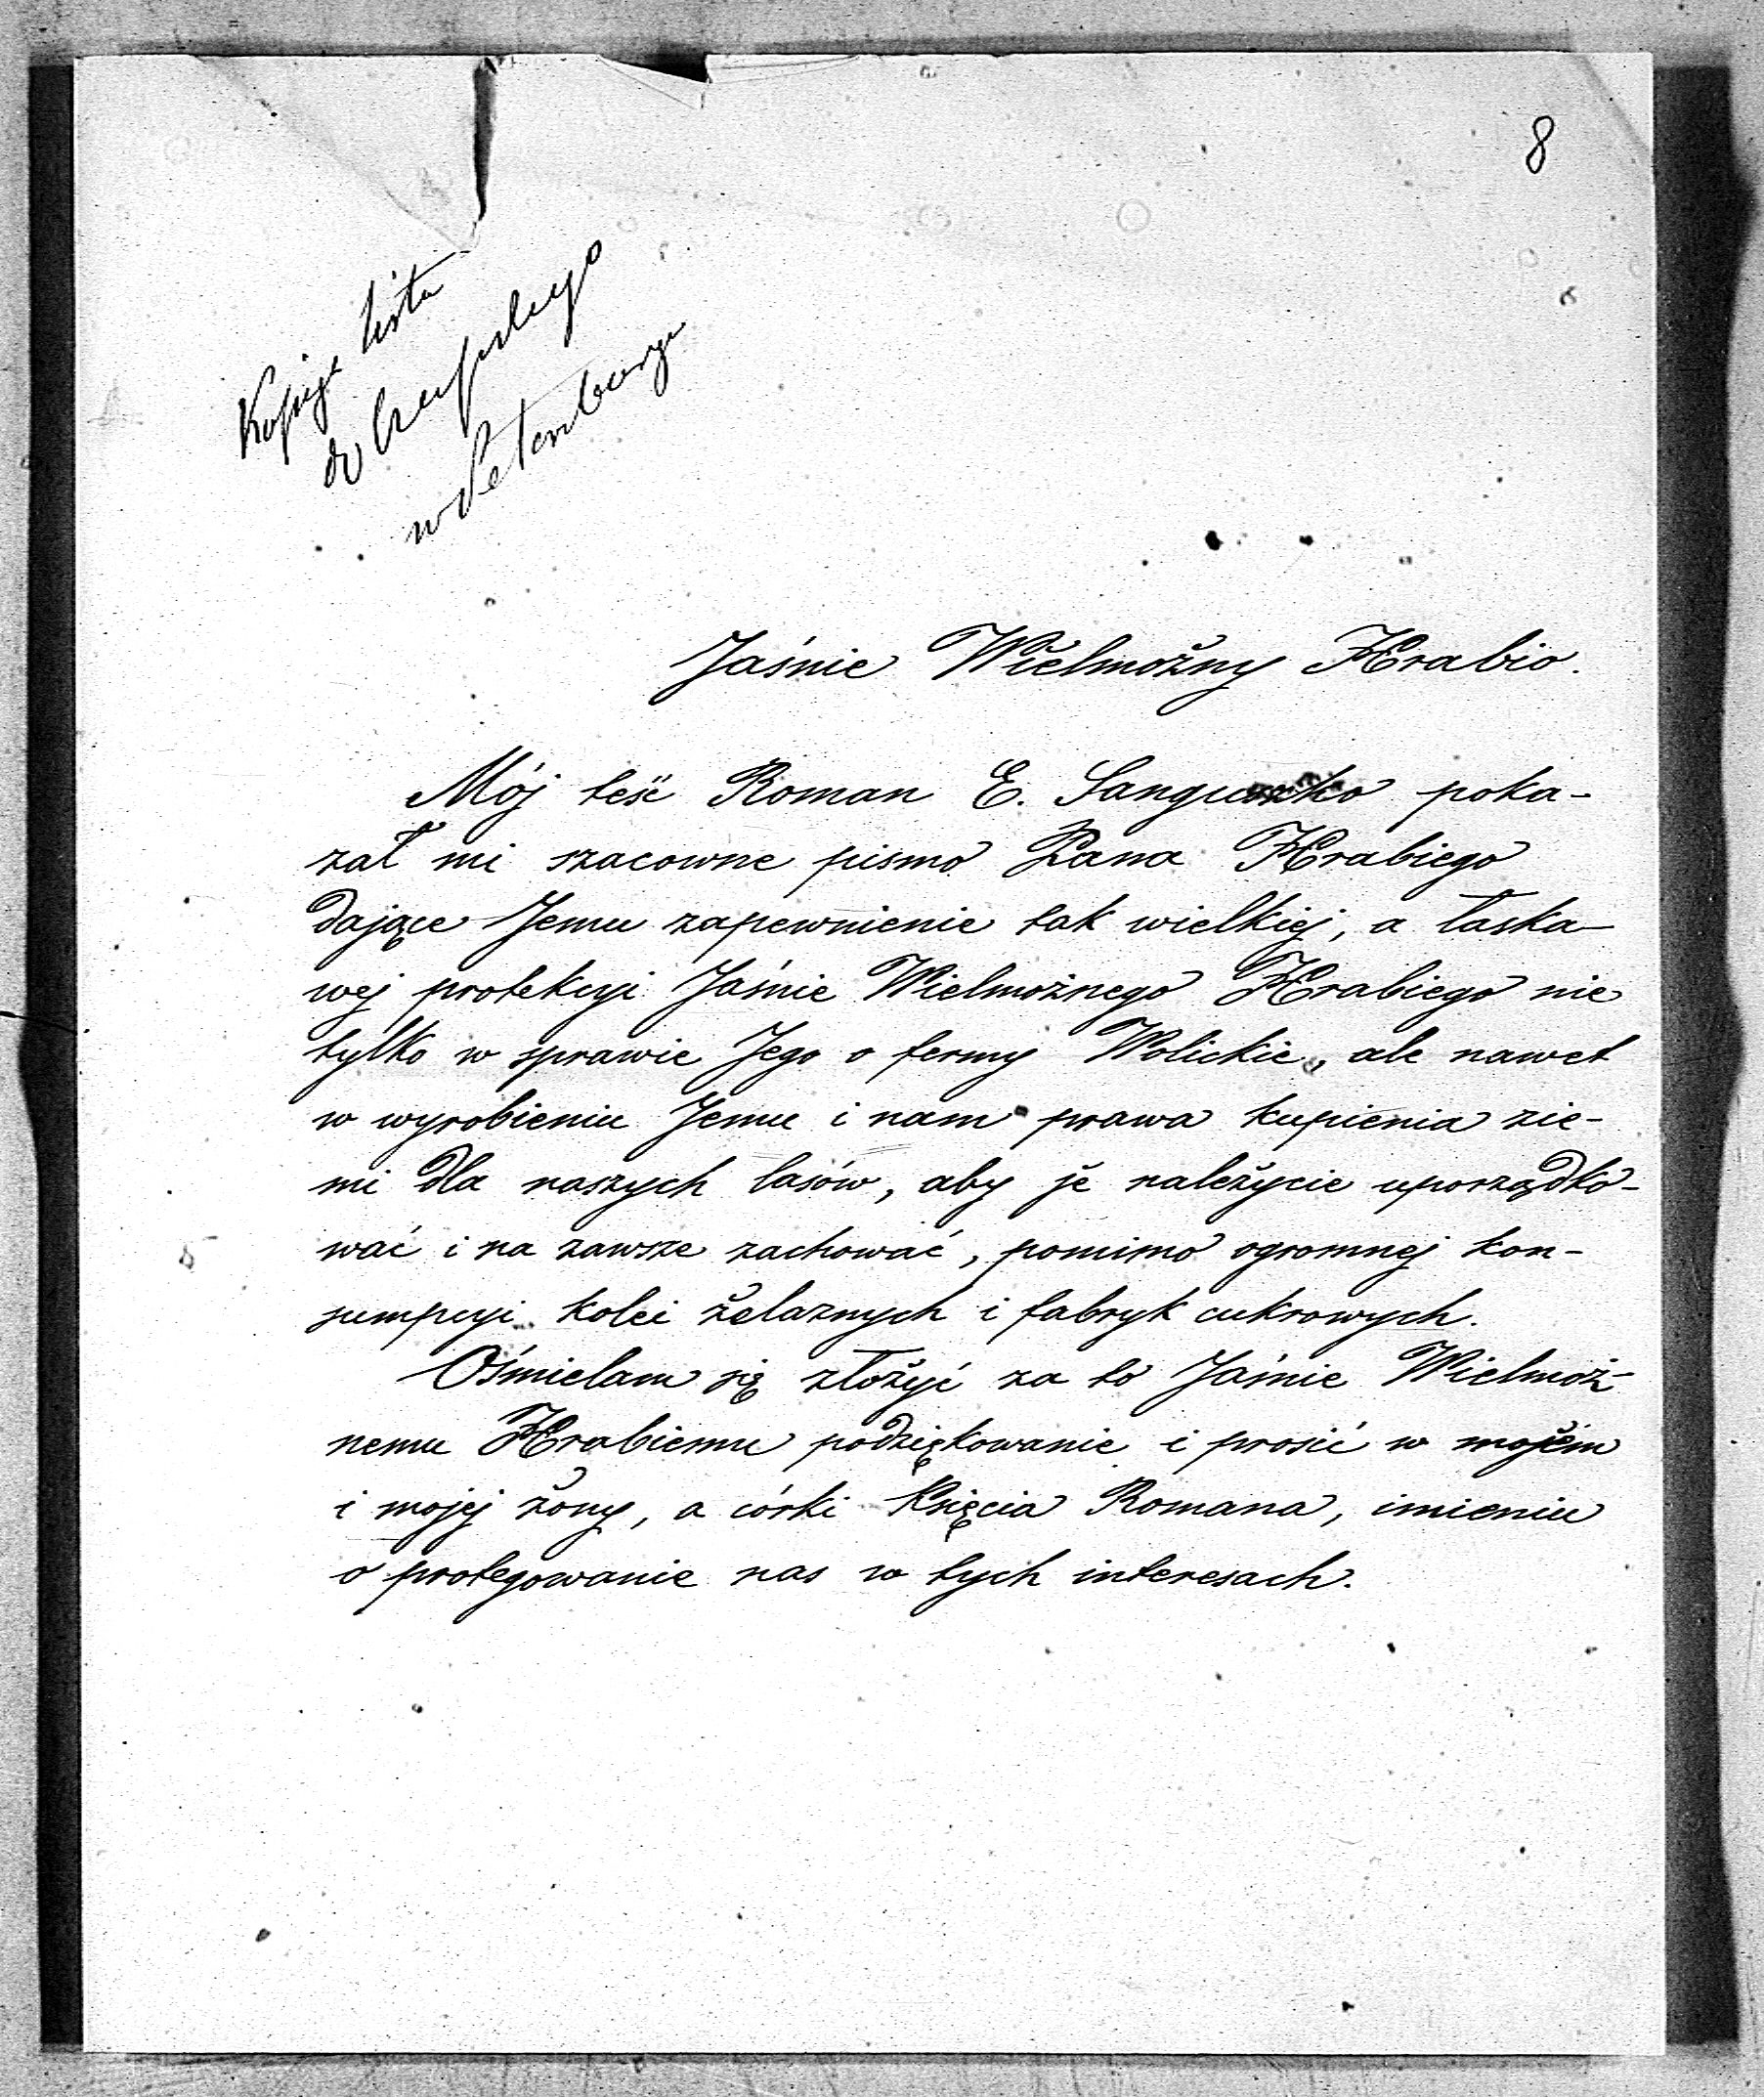 8
Kopija listu
do
w Petersburgu
Jaśnie Wielmożny Hrabio.
Mój teść Roman E. Sanguszko poka-
zał mi szacowne pismo Pana Hrabiego
dające Jemu zapewnienie tak wielkiej, a łaska-
wej protekcyi Jaśnie Wielmożnego Hrabiego nie
tylko w sprawie Jego o fermy Wolickie, ale nawet
w wyrobieniu Jemu i nam prawa kupienia zie-
mi dla naszych lasów, aby je należycie uporządko-
wać i na zawsze zachować, pomimo ogromnej kon-
sumpcyi kolei żelaznych i fabryk cukrowych.
Ośmielam się złożyć za to Jaśnie Wielmoż-
nemu Hrabiemu podziękowanie i prosić w mojém
i mojej żony, a córki Księcia Romana, imieniu
o protegowanie nas w tych interesach.